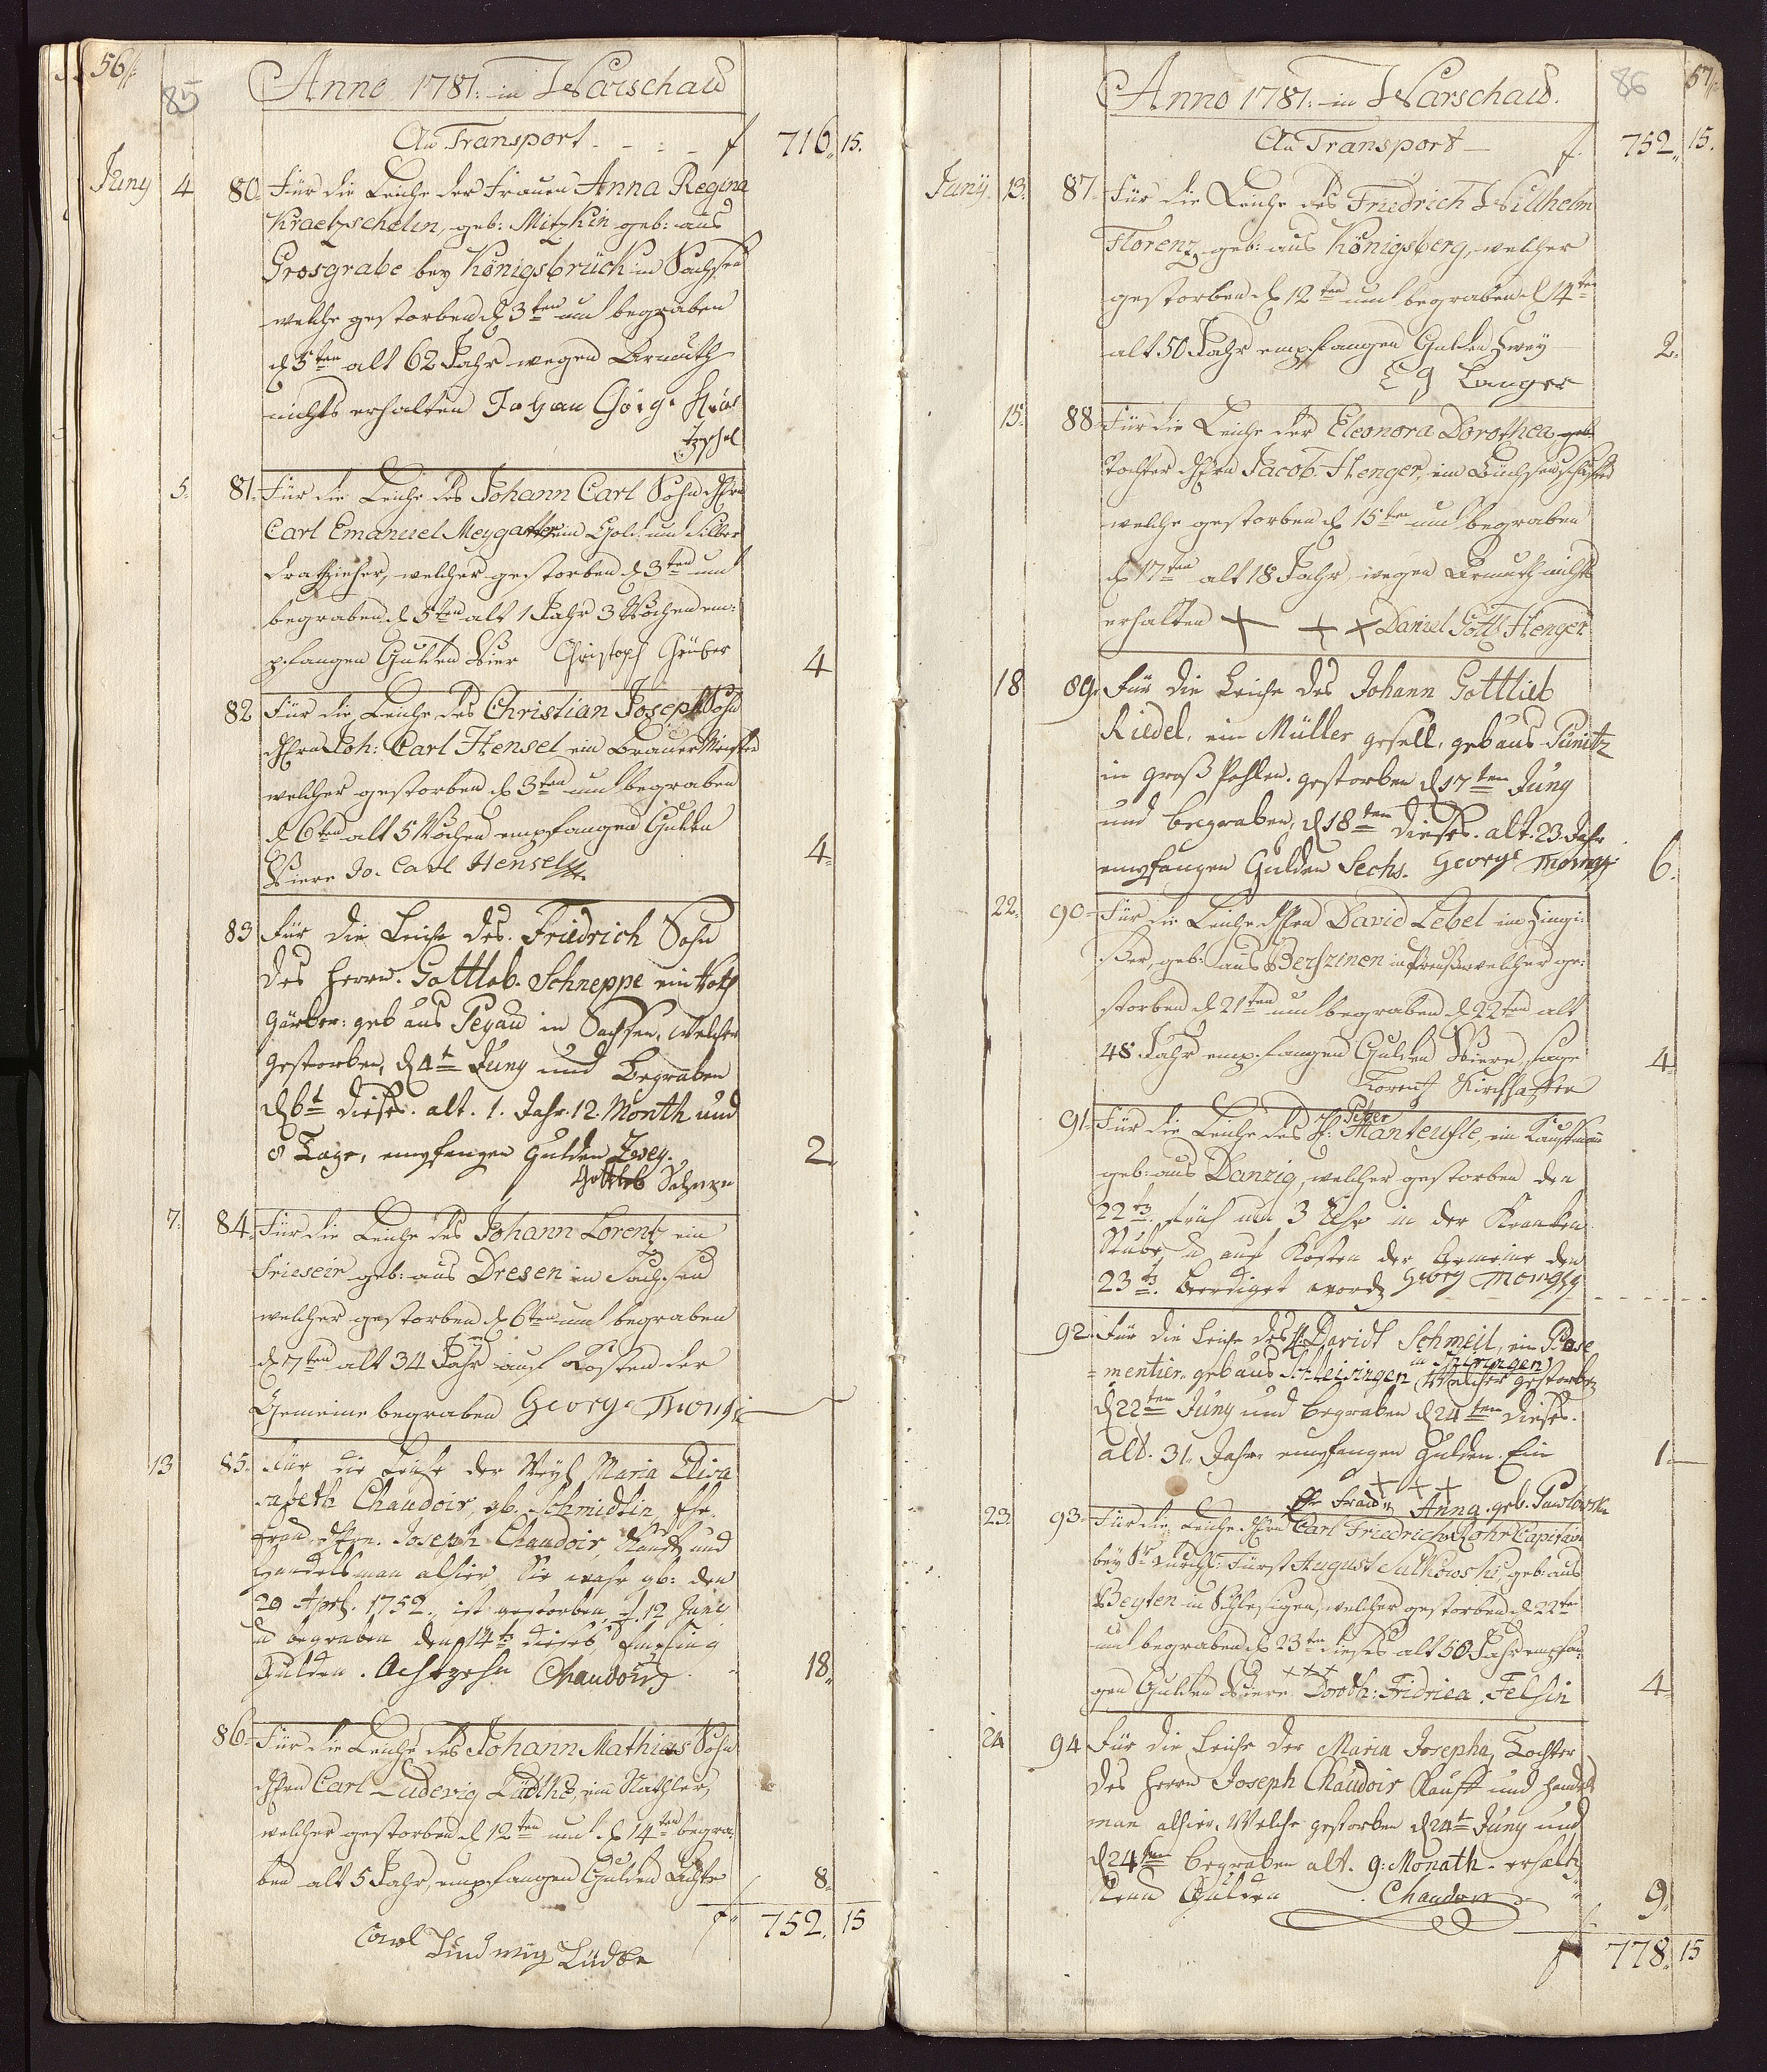 56//:
85
Anno 1781: in Warschau
An Transport - - : - f 716,, 15.
Juny 4 80. Für die Leiche der Frauen Anna Regina
Kraetzschelin, geb: Mitzkin geb: aus
Grosgrabe bey Königsbrück in Sachsen
welche gestorben d 3ten und begraben
d 5ten alt 62 Jahr wegen Armuth
nichts erhalten Johan Görge Krae
tzschel
5. 81. Für die Leiche des Johann Carl Sohn dHrn
Carl Emanuel ein Gold und Silber
Drathzieher, welcher gestorben d 3ten und
begraben d 5ten alt 1 Jahr 3 Wochen em:
pfangen Gulden Vier Christoph Gruber 4
82 Für die Leiche des Christian Joseph Sohn
dHrn Joh: Carl Hensel ein Brauer Meister
welcher gestorben d 3ten und begraben
d 6ten alt 5 Wochen empfangen Gulden
Viere Jo. Carl Hensel 4.
83 Für die Leiche des Friedrich Sohn
des Herrn Gottlob Schneppe ein Roth
Gärber: geb aus Pegau in Sachsen, welcher
gestorben, d 4t Juny und Begraben
d 6t dieses. alt. 1. Jahr. 12. Month und
8 Tage, empfangen Gulden Zwey. 2.
Gottlob
7. 84. Für die Leiche des Johann Lorentz ein
Frieseir geb: aus Dresen in Sachsen
welcher gestorben d 6ten und begraben
d 7ten alt 34 Jahr auf Kosten der
Gemeine begraben George
13 85. Für die Leiche der Maria Elisa
sabeth Chaudoir, gb. Schmidtin Ehe
Frau dHrn. Joseph Chaudoir, Kauf und
Handelsman alhier, Sie ware gb: den
29 Aprl. 1752. ist gestorben, d. 12 Juny
u begraben den 14ts dieses, Empfing
Gulden. Achtzehn Chaudoir 18.
86. Für die Leiche des Johann Mathias Sohn
dHrn Carl Ludewig Lüdtke, ein
welcher gestorben d 12ten und d 14ten begra:
ben alt 5 Jahr, empfangen Gulden Achte 8.
f 752. 15
Carl Ludwig Lüdke
57//:
86
Anno 1781: in Warschau.
An Transport - f. 752,, 15.
Junÿ 13. 87. Für die Leiche des Friedrich Wilhelm
Florenz, geb: aus Königsberg, welcher
gestorben d 12ten und begraben d 14ten
alt 50 Jahr empfangen Gulden Zwey 2.
E G Langer
15. 88. Für die Leiche der Eleonora Dorothea geb
Tochter dHrn Jacob Henger, ein Büchsenschäfter
welche gestorben d 15ten und begraben
d 17ten alt 18 Jahr, wegen Armuth nichts
erhalten + + x Daniel Gottl Henger
18 89. Für die Leiche des Johann Gottlieb
Riedel, ein Müller gesell, geb aus Punitz
in groß Pohlen. gestorben d 17ten Juny
und begraben, d 18ten dieses. alt. 23 Jahr
empfangen Gulden Sechs. George 6.
22. 90. Für die Leiche dHrn David Lebel ein
geb: aus in Preußen welcher ge:
storben d 21ten und begraben d 22ten alt
48 Jahr empfangen Gulden Viere, sage 4.
Lorentz
91. Für die Leiche des H: Peter Manteufle, ein Kaufman
geb: aus Danzig, welcher gestorben den
22ts früh um 3 Uhr in der Kranken
Stube, u auf Kosten der Gemeine den
23ts. beerdiget word Georg
92. Für die Leiche des H. Davidt Schmeil, ein Pose
=mentier. geb aus Schleisingen in Thiringen, Welcher gestorben
d 22ten Juny und begraben d 24ten dieses.
alt. 31. Jahr. empfangen Gulden. Ein 1.
+ + +
Ehe Frau Anna. geb. Pawlowske
23. 93. Für die Leiche dHrn Carl Friedrich Capitain
bey Sr Durchl: Fürst August Sulkowski, geb: aus
Beyten in Schlesigen, welcher gestorben d 22ten
und begraben d 23ten dieses alt 50 Jahr empfan
gen Gulden Viere +++ Doroth: Fridrica Felsin 4.
24 94 Für die Leiche der Maria Josepha, Tochter
des Herrn Joseph Chaudoir Kauff und Handels
man alhier, Welche gestorben d 24t Juny und
d 24ten begraben alt. 9: Monath. erhalt
Neun Gulden Chaudoir 9.
f 778. 15